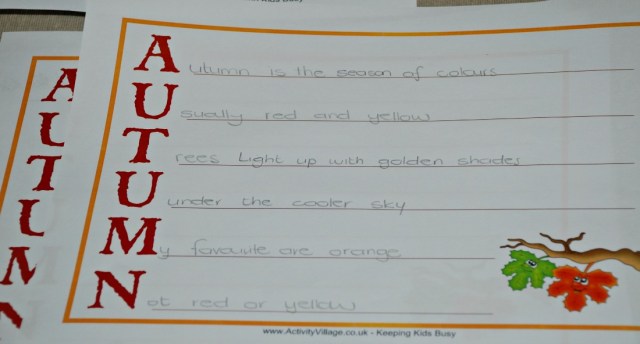 Kids Busy
Autumn is the season of colours
Usually red and yellow
Trees Light up with golden shades
Uunder the cooler sky
My favourite are orange
Not red or yellow
www.ActivityVillage.co.uk - Keeping Kids Busy
A
U
T
U
M
N